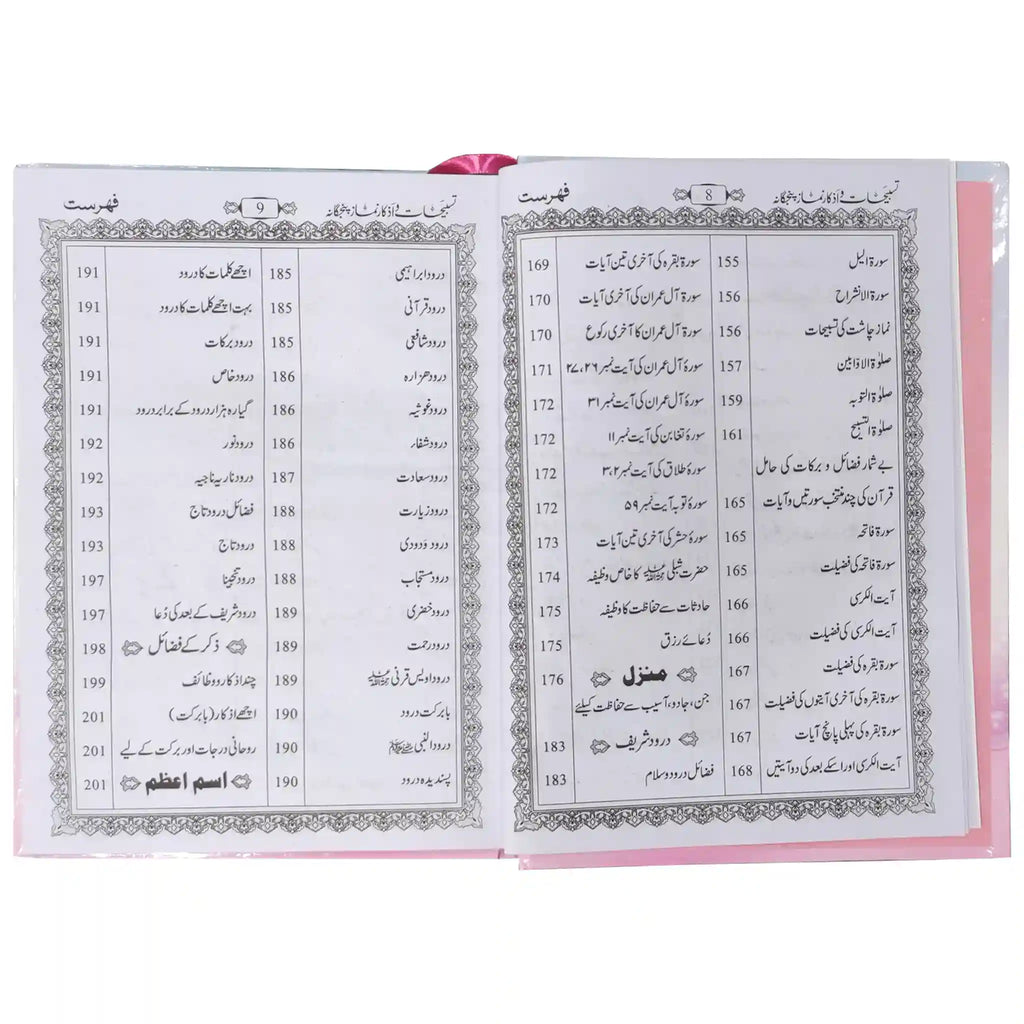 تسبیحات و اذکار نماز پنجگانہ 8 فہرست
سورۃ الیل 155
سورۃ الانشراح 156
نماز چاشت کی تسبیحات 156
صلوٰۃ الاوابین 157
صلوٰۃ التوبہ 159
صلوٰۃ التسبیح 161
بے شمار فضائل و برکات کی حامل
قرآن کی چند منتخب سورتیں و آیات 165
سورۃ فاتحہ 165
سورۃ فاتحہ کی فضیلت 165
آیت الکرسی 166
آیت الکرسی کی فضیلت 166
سورۃ بقرہ کی فضیلت 167
سورۃ بقرہ کی آخری آیتوں کی فضیلت 167
سورۃ بقرہ کی پہلی پانچ آیات 167
آیت الکرسی اور اسکے بعد کی دو آیتیں 168
سورۃ بقرہ کی آخری تین آیات 169
سورۃ آل عمران کی آخری آیات 170
سورۃ آل عمران کا آخری رکوع 170
سورۂ آل عمران کی آیت نمبر ۲۶، ۲۷ 171
سورۃ آل عمران کی آیت نمبر ۳۱ 172
سورۂ تغابن کی آیت نمبر ۱۱ 172
سورۂ طلاق کی آیت نمبر ۲، ۳ 172
سورۂ توبہ آیت نمبر ۵۹ 172
سورۂ حشر کی آخری تین آیات 173
حضرت شبلی رحمۃ اللہ علیہ کا خاص وظیفہ 174
حادثات سے حفاظت کا وظیفہ 175
دُعائے رزق 175
منزل 176
جن، جادو، آسیب سے حفاظت کیلئے
درود شریف 183
فضائل درود و سلام 183
تسبیحات و اذکار نماز پنجگانہ 9 فہرست
درود ابراہیمی 185
درود قرآنی 185
درود شافعی 185
درود ھزارہ 186
درود غوثیہ 186
درود شفاء 186
درود سعادت 187
درود زیارت 188
درود ودودی 188
درود مستجاب 188
درود خضری 189
درود رحمت 189
درود اویس قرنی رحمۃ اللہ علیہ 189
بابرکت درود 190
درود النبی ﷺ 190
پسندیدہ درود 190
اچھے کلمات کا درود 191
بہت اچھے کلمات کا درود 191
درود برکات 191
درود خاص 191
گیارہ ہزار درود کے برابر درود 191
درود نور 192
درود ناریہ ناجیہ 192
فضائل درود تاج 193
درود تاج 193
درود تنجینا 197
درود شریف کے بعد کی دُعا 197
ذکر کے فضائل 198
چند اذکار و وظائف 199
اچھے اذکار (بابرکت) 201
روحانی درجات اور برکت کے لیے 201
اسم اعظم 201